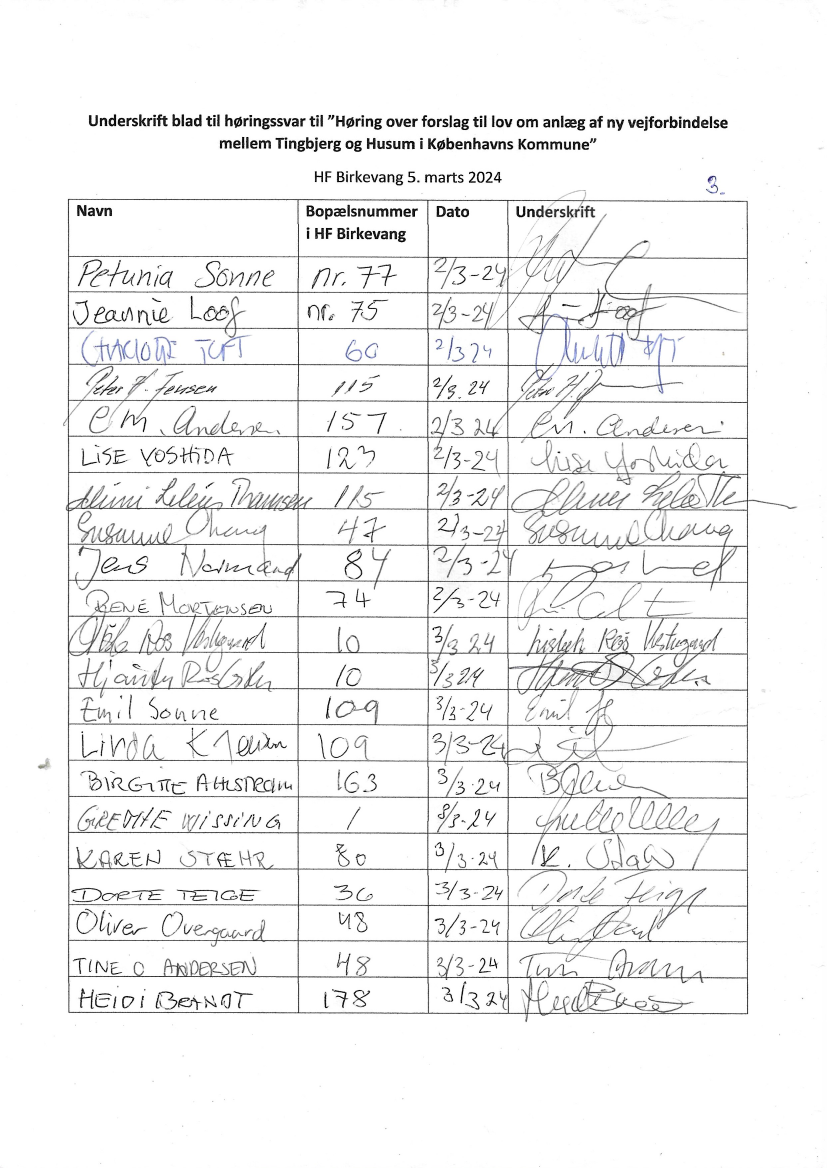 Underskrift blad til høringssvar til ”Høring over forslag til lov om anlæg af ny vejforbindelse
mellem Tingbjerg og Husum i Københavns Kommune”
HF Birkevang 5. marts 2024
3.
Navn Bopælsnummer i HF Birkevang Dato Underskrift
Petunia Sonne nr. 77 2/3-24
Jeannie Loof nr. 75 2/3-24 Loof
TOFT 60 2/3 24
Peter H. Jensen 115 2/3.24 Peter H. J
C M. Andersen 157 2/3 24 C M. Andersen
LISE YOSHIDA 123 2/3-24 Lise Yoshida
Thamsen 115 2/3-24
Susanne Chang 47 2/3-24 Susanne Chang
Jens Normand 84 2/3-24
RENÉ MORTENSEN 74 2/3-24
Ros Vestergaard 10 3/3 24 Lisbeth Ros Vestergaard
10 3/3 24
Emil Sonne 109 3/3-24 Emil
Linda 109 3/3-24
BIRGITTE AHLSTRØM 163 3/3-24
GRETHE WISSING 1 3/3-24
KAREN STÆHR 80 3/3-24 K. Stæhr
DORTE TEIGE 36 3/3-24 Dorte Teige
Oliver Overgaard 48 3/3-24
TINE O ANDERSEN 48 3/3-24
HEIDI BRANDT 178 3/3 24